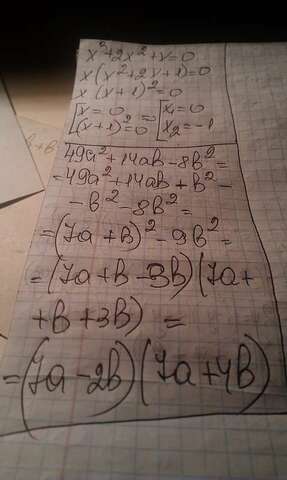 x³+2x²+x=0
x(x²+2x+1)=0
x(x+1)²=0
[x=0 = [x₁=0
[(x+1)²=0 [x₂=-1
49a²+14ab-8b²=
=49a²+14ab+b²-
-b²-8b²=
=(7a+b)²-9b²=
=(7a+b-3b)(7a+
+b+3b) =
=(7a-2b)(7a+4b)